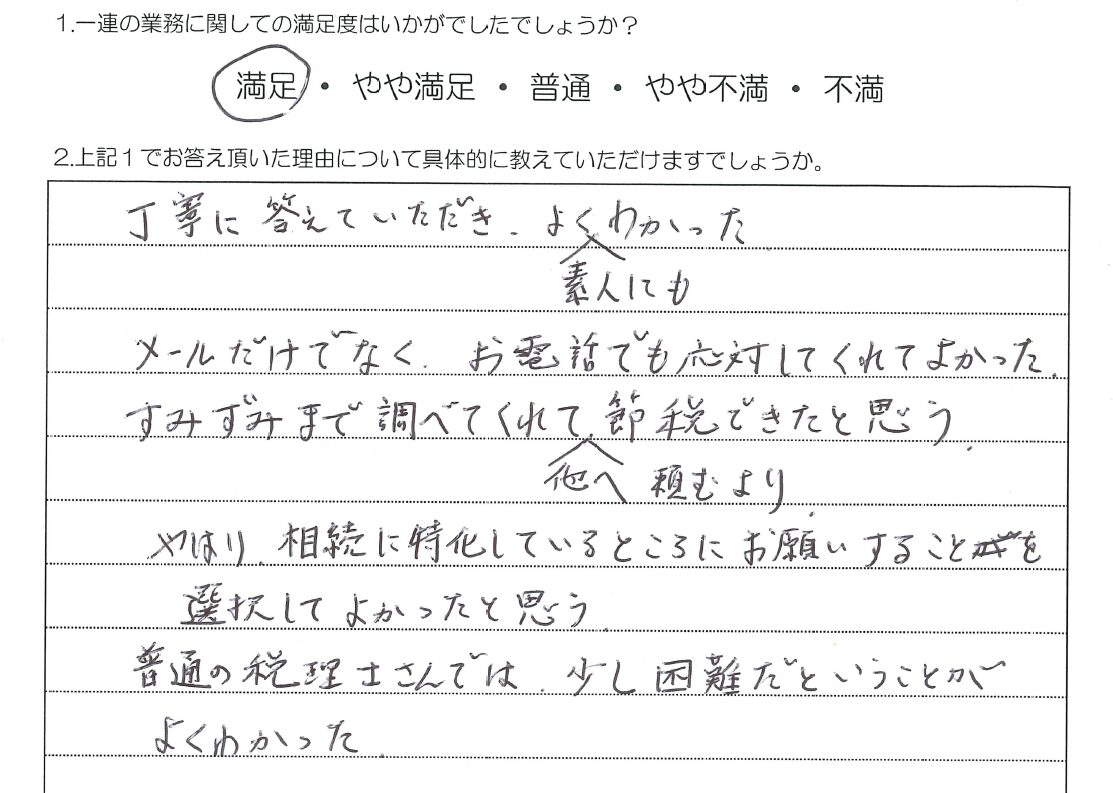 1.一連の業務に関しての満足度はいかがでしたでしょうか？
満足 ・ やや満足 ・ 普通 ・ やや不満 ・ 不満
2.上記1でお答え頂いた理由について具体的に教えていただけますでしょうか。
丁寧に答えていただき、よくわかった
素人にも
メールだけでなく、お電話でも応対してくれてよかった。
すみずみまで調べてくれて、節税できたと思う。
他へ頼むより、
やはり、相続に特化しているところにお願いすることを
選択してよかったと思う。
普通の税理士さんでは、少し困難だということが
よくわかった。